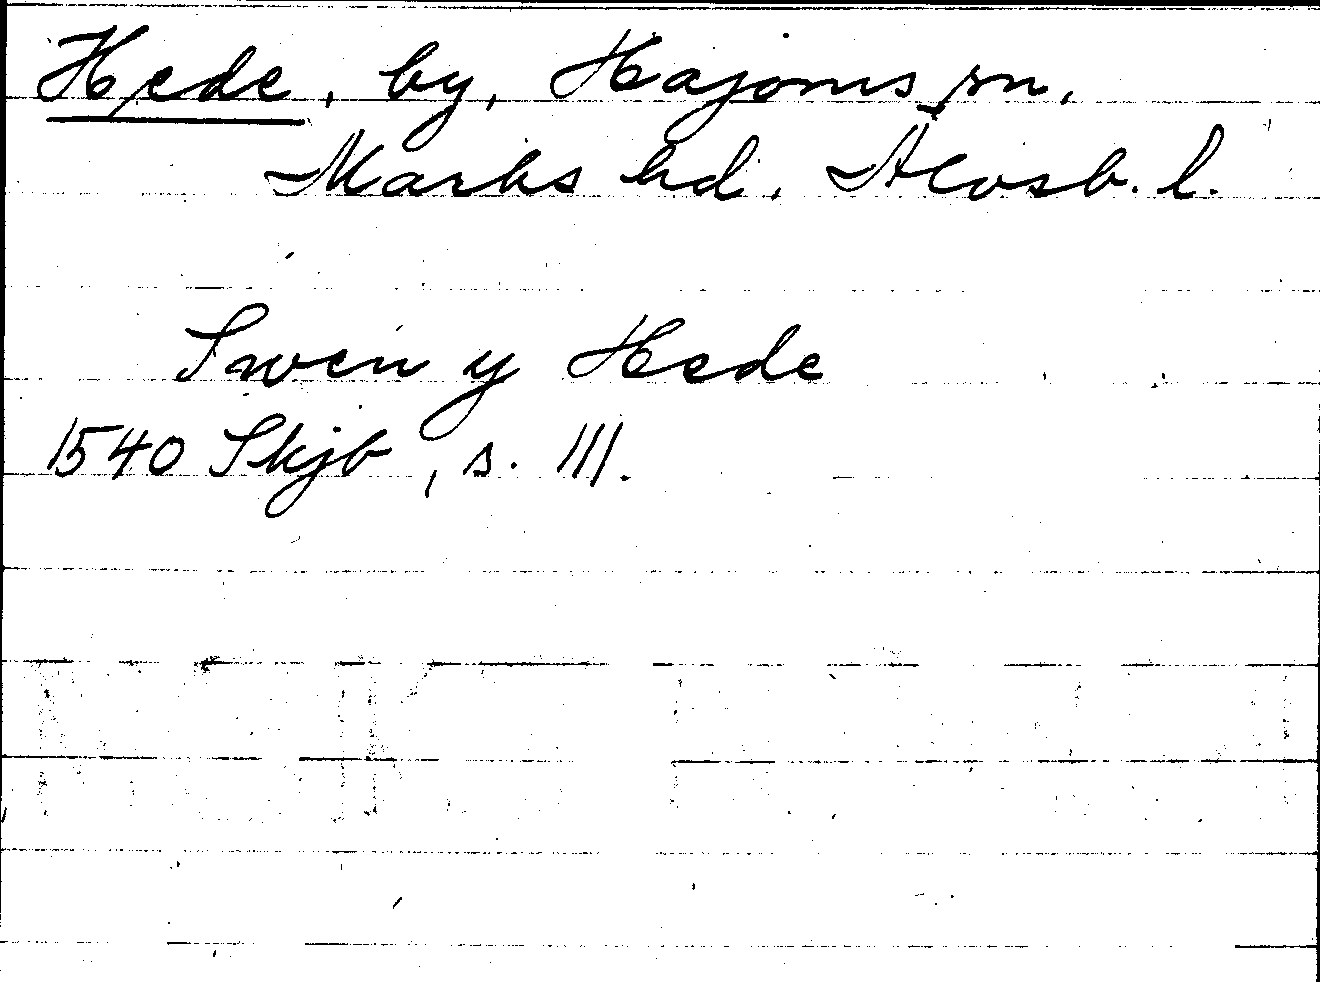 Hede, by, Hajoms sn,
Marks hd. Älvsb. l.
Swen y Hede
1540 Skjb, s. 111.